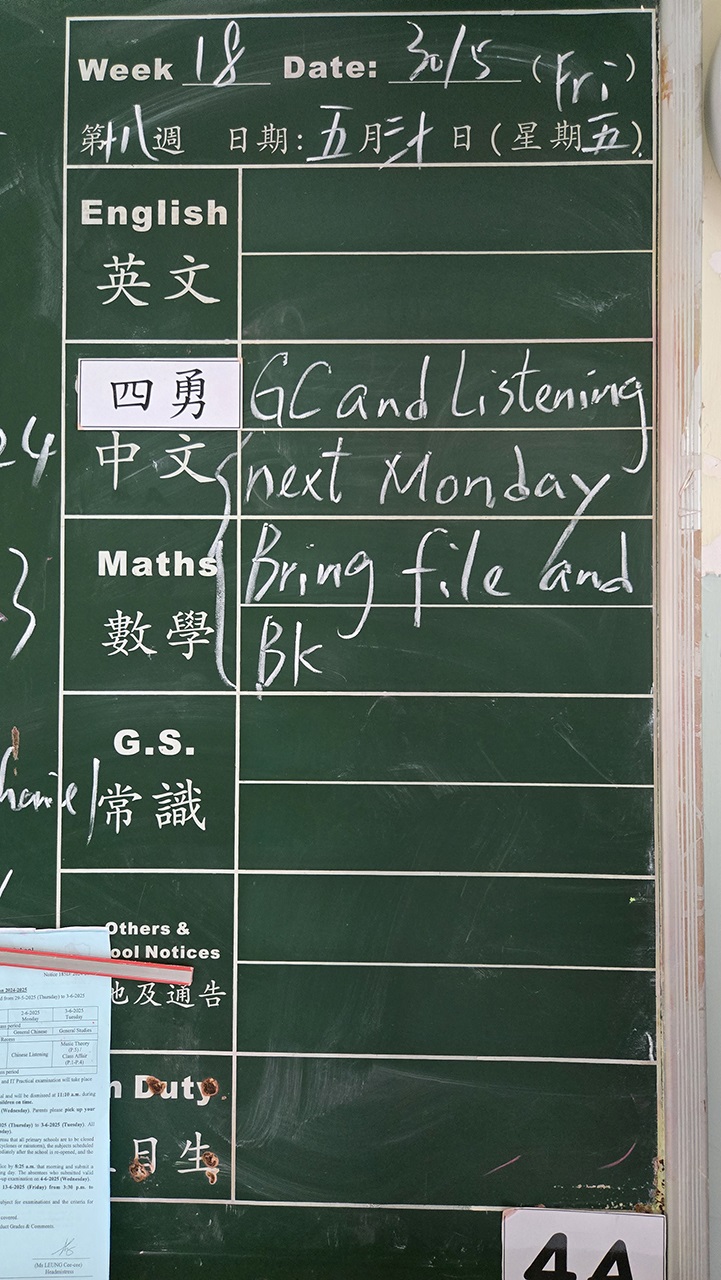 Week 18 Date: 30/5 (Fri)
第十八週 日期: 五月三十日 (星期五)
English
英文
四勇 GC and Listening
中文 next Monday
Maths Bring file and
數學 BK
G.S.
常識
Others &
ool Notices
他及通告
n Duty
直日生
4A
24
3
2024-2025
ed from 29-5-2025 (Thursday) to 3-6-2025
2-6-2025 3-6-2025
Monday Tuesday
General Chinese General Studies
Chinese Listening Music Theory
(P.5) /
Class Affair
(P.1-P.4)
and IT Practical examination will take place
and will be dismissed at 11:10 a.m. during
children on time.
(Wednesday). Parents please pick up your
2025 (Thursday) to 3-6-2025 (Tuesday). All
13-6-2025 (Friday) from 3:30 p.m. to
(Ms LEUNG
Headmistress